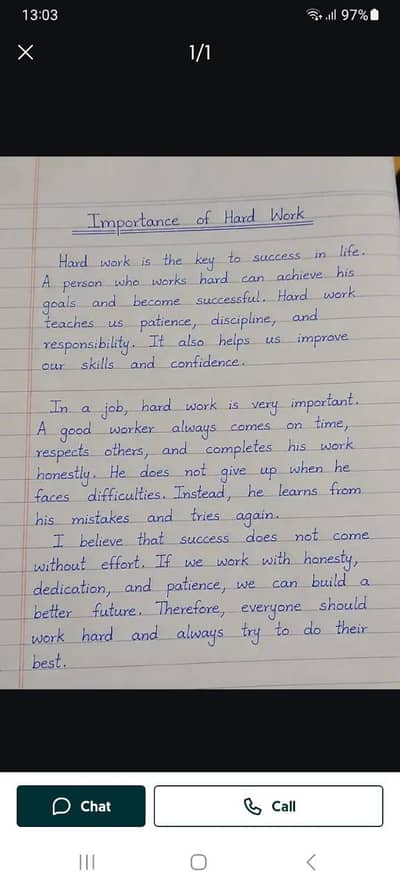 13:03
97%
1/1
Importance of Hard Work
Hard work is the key to success in life.
A person who works hard can achieve his
goals and become successful. Hard work
teaches us patience, discipline, and
responsibility. It also helps us improve
our skills and confidence.
In a job, hard work is very important.
A good worker always comes on time,
respects others, and completes his work
honestly. He does not give up when he
faces difficulties. Instead, he learns from
his mistakes and tries again.
I believe that success does not come
without effort. If we work with honesty,
dedication, and patience, we can build a
better future. Therefore, everyone should
work hard and always try to do their
best.
Chat
Call